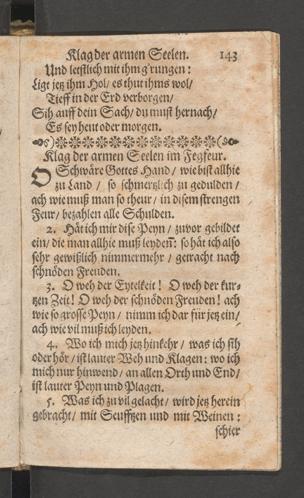 Klag der armen Seelen. 143
Und letstlich mit ihm g'rungen:
Ligt jetz ihm Hol/ es thut ihms wol/
Tieff in der Erd verborgen/
Sih auff dein Sach/ du must hernach/
Es sey heut oder morgen.
Klag der armen Seelen im Fegfeur.
O Schwäre Gottes Hand/ wie bist allhie
zu Land/ so schmertzlich zu gedulden/
ach wie muß man so theur/ in disem strengen
Feur/ bezahlen alle Schulden.
2. Hät ich mir dise Peyn/ zuvor gebildet
ein/ die man allhie muß leyden: so hät ich also
sehr gewißlich nimmermehr/ getracht nach
schnöden Freuden.
3. O weh der Eytelkeit! O weh der kur-
tzen Zeit! O weh der schnöden Freuden! ach
wie so grosse Peyn/ nimm ich dar für jetz ein/
ach wie vil muß ich leyden.
4. Wo ich mich jetz hinkehr/ was ich sih
oder hör/ ist lauter Weh und Klagen: wo ich
mich nur hinwend/ an allen Orth und End/
ist lauter Peyn und Plagen.
5. Was ich zu vil gelacht/ wird jetz herein
gebracht/ mit Seufftzen und mit Weinen:
schier